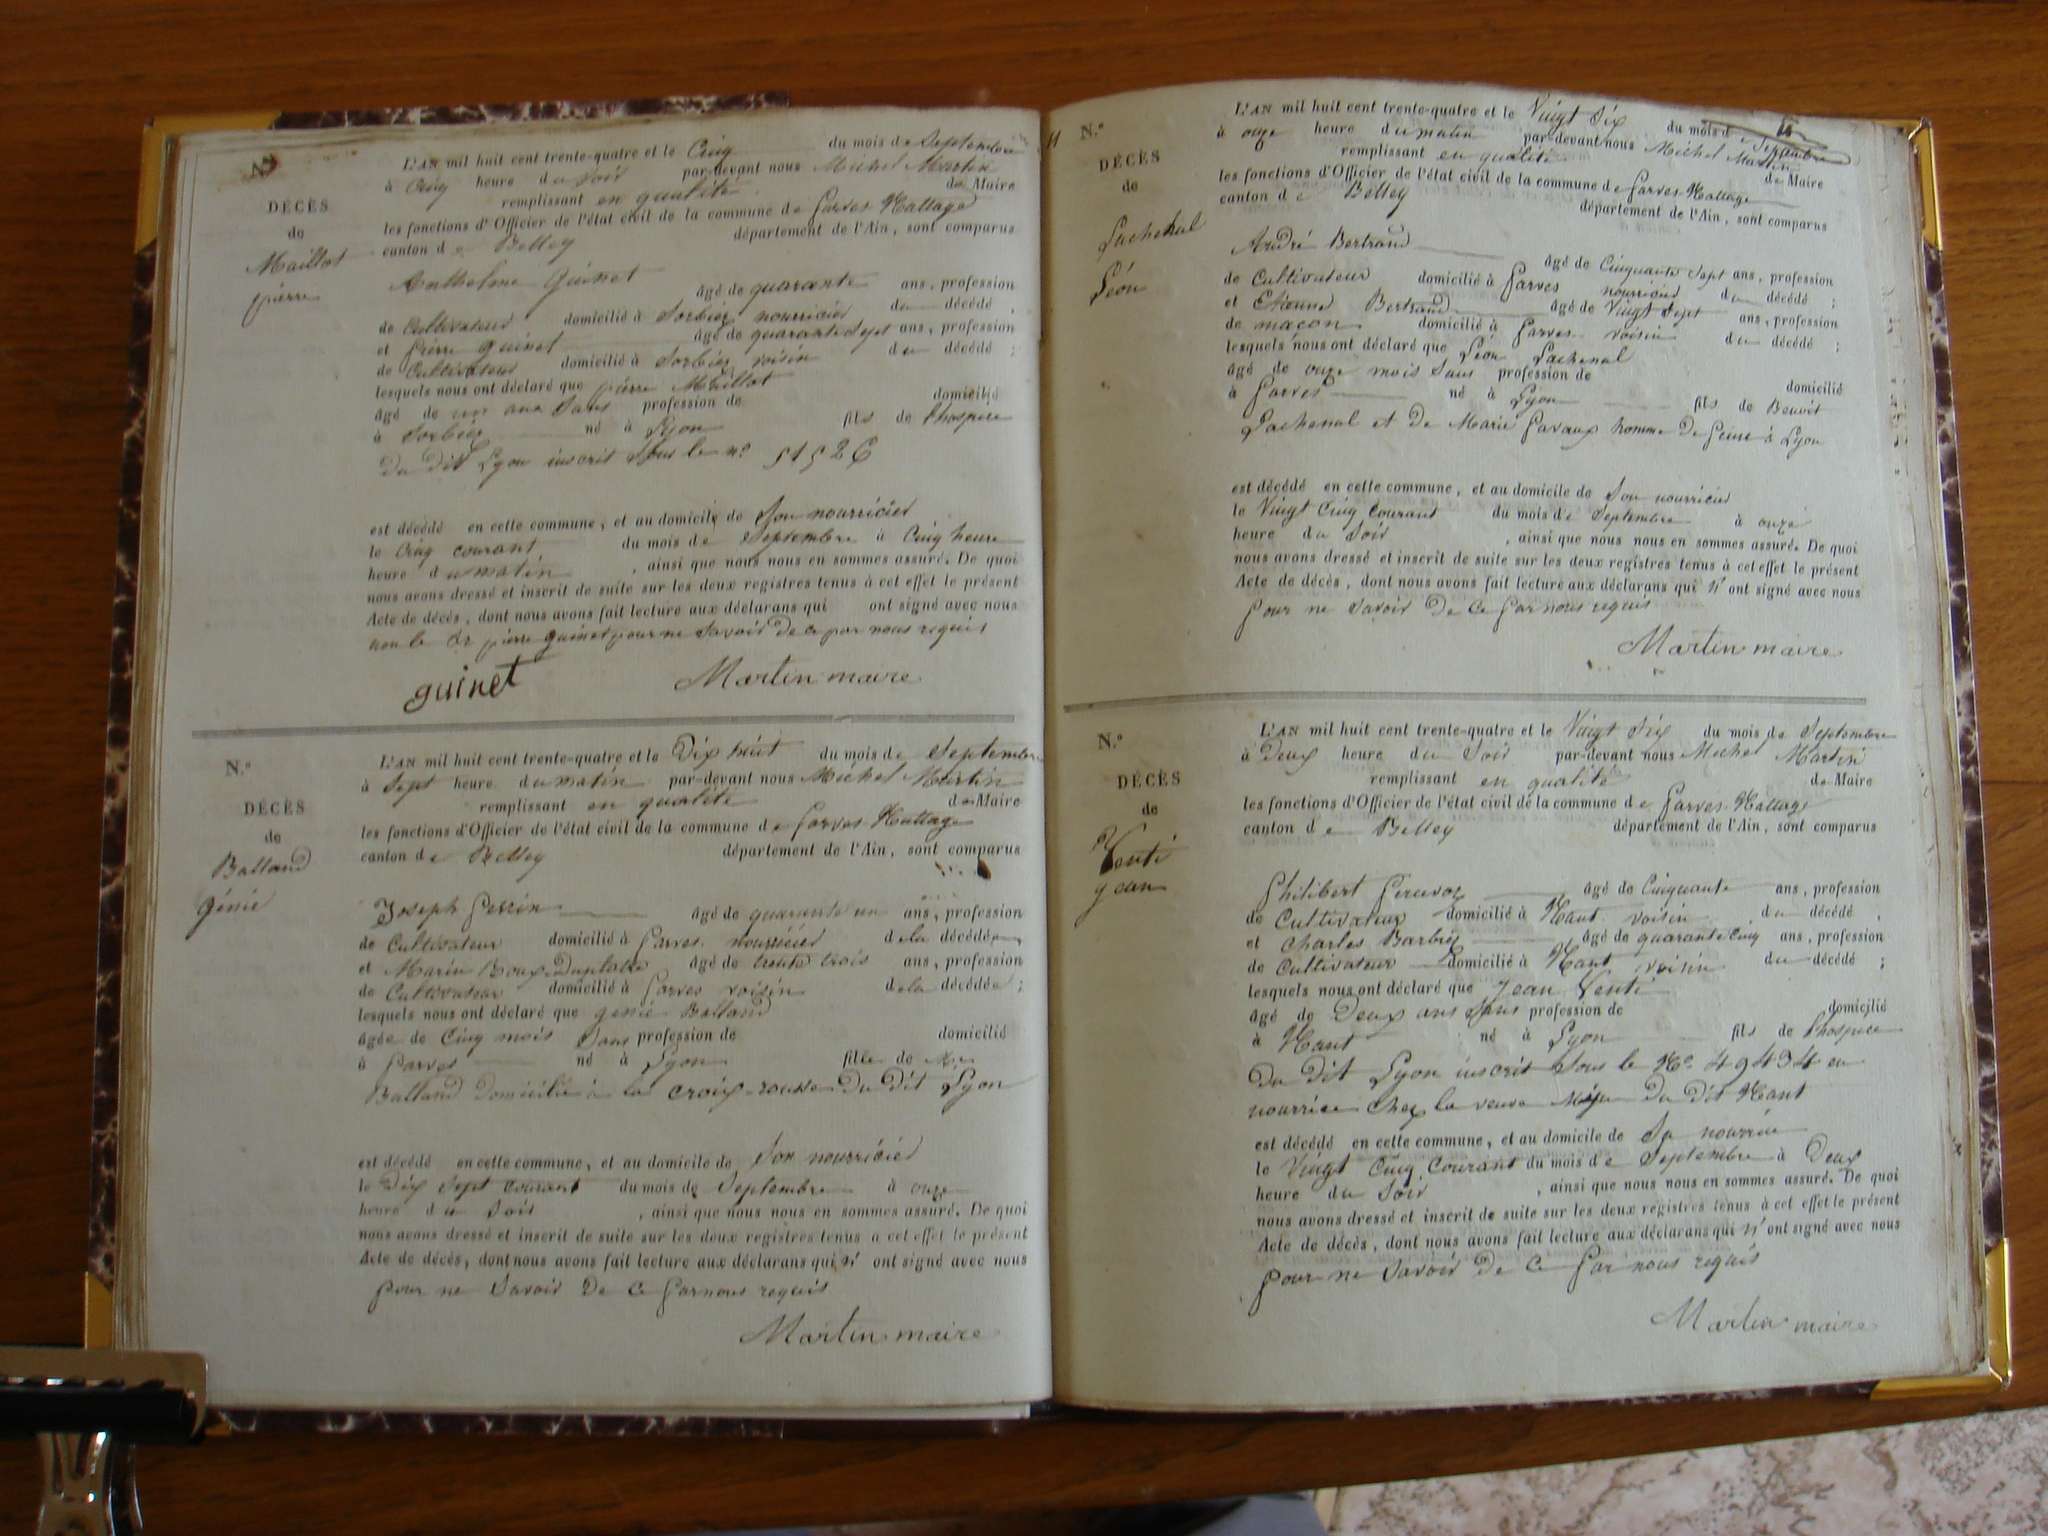 N.o
DÉCÈS
de
Maillot
pierre
L'AN mil huit cent trente-quatre et le Cinq du mois de Septembre
à Cinq heure du Soir par-devant nous Michel Martin
remplissant en qualité de Maire
les fonctions d'Officier de l'état civil de la commune de Parves Nattage
canton de Belley département de l'Ain, sont comparus
Anthelme Guinet âgé de quarante ans, profession
de Cultivateur domicilié à Sorbiez nourricier du décédé,
et Pierre guinet âgé de quarante Sept ans, profession
de Cultivateur domicilié à Sorbiez voisin du décédé;
lesquels nous ont déclaré que pierre Maillot
âgé de un ans Sans profession de domicilié
à Sorbiez né à Lyon fils de l'hospice
du dit Lyon inscrit Sous le n.o 51526
est décédé en cette commune, et au domicile de Son nourricier
le Cinq courant du mois de Septembre à Cinq heure
heure du matin, ainsi que nous nous en sommes assuré. De quoi
nous avons dressé et inscrit de suite sur les deux registres tenus à cet effet le présent
Acte de décès, dont nous avons fait lecture aux déclarans qui ont signé avec nous
non le Sr pierre guinet pour ne Savoir de ce par nous requis
guinet Martin maire
N.o
DÉCÈS
de
Balland
génie
L'AN mil huit cent trente-quatre et le Dix huit du mois de Septembre
à Sept heure du matin par-devant nous Michel Martin
remplissant en qualité de Maire
les fonctions d'Officier de l'état civil de la commune de Parves Nattage
canton de Belley département de l'Ain, sont comparus
Joseph Perrin âgé de quarante un ans, profession
de Cultivateur domicilié à Parves nourricier de la décédée,
et Marin Roux âgé de trente trois ans, profession
de Cultivateur domicilié à Parves voisin de la décédée;
lesquels nous ont déclaré que génie Balland
âgée de Cinq mois Sans profession de domicilié
à Parves né à Lyon fille de
Balland Domicilié à la croix-rousse Du Dit Lyon
est décédé en cette commune, et au domicile de Son nourricier
le Dix Sept courant du mois de Septembre à onze
heure du Soir, ainsi que nous nous en sommes assuré. De quoi
nous avons dressé et inscrit de suite sur les deux registres tenus à cet effet le présent
Acte de décès, dont nous avons fait lecture aux déclarans qui n' ont signé avec nous
pour ne Savoir De ce par nous requis
Martin maire
N.o
DÉCÈS
de
Lachenal
Léon
L'AN mil huit cent trente-quatre et le Vingt Six du mois de Septembre
à onze heure du matin par-devant nous Michel Martin
remplissant en qualité de Maire
les fonctions d'Officier de l'état civil de la commune de Parves Nattage
canton de Belley département de l'Ain, sont comparus
André Bertrand âgé de Cinquante Sept ans, profession
de Cultivateur domicilié à Parves nourricier du décédé;
et Etienne Bertrand âgé de Vingt Sept ans, profession
de maçon domicilié à Parves voisin du décédé;
lesquels nous ont déclaré que Léon Lachenal
âgé de onze mois Sans profession de domicilié
à Parves né à Lyon fils de Benoit
Lachenal et de Marie Pavaux homme De Peine à Lyon
est décédé en cette commune, et au domicile de Son nourricier
le Vingt Cinq Courant du mois de Septembre à onze
heure du Soir, ainsi que nous nous en sommes assuré. De quoi
nous avons dressé et inscrit de suite sur les deux registres tenus à cet effet le présent
Acte de décès, dont nous avons fait lecture aux déclarans qui n' ont signé avec nous
pour ne Savoir De ce par nous requis
Martin maire
N.o
DÉCÈS
de
Venti
jean
L'AN mil huit cent trente-quatre et le Vingt Six du mois de Septembre
à Deux heure du Soir par-devant nous Michel Martin
remplissant en qualité de Maire
les fonctions d'Officier de l'état civil de la commune de Parves Nattage
canton de Belley département de l'Ain, sont comparus
Philibert âgé de Cinquante ans, profession
de Cultivateur domicilié à Nant voisin du décédé,
et Charles Barbiez âgé de quarante Cinq ans, profession
de Cultivateur domicilié à Nant voisin du décédé;
lesquels nous ont déclaré que Jean Venti
âgé de Deux ans Sans profession de domicilié
à Nant né à Lyon fils de l'hospice
Du Dit Lyon inscrit Sous le N.o 49434 en
nourrice chez la veuve Du Dit Nant
est décédé en cette commune, et au domicile de Sa nourrice
le Vingt Cinq Courant du mois de Septembre à Deux
heure du Soir, ainsi que nous nous en sommes assuré. De quoi
nous avons dressé et inscrit de suite sur les deux registres tenus à cet effet le présent
Acte de décès, dont nous avons fait lecture aux déclarans qui n' ont signé avec nous
pour ne Savoir De ce Par nous requis
Martin maire